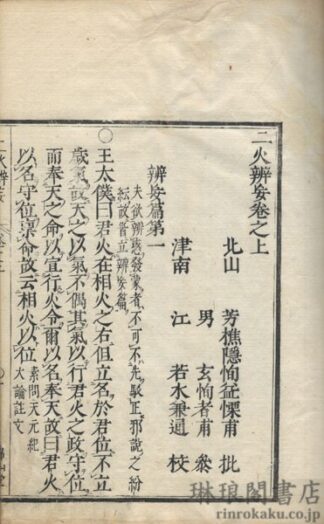 二火辨妄卷之上
北山 芳樵隱恂益慄甫 批
男 玄恂者甫 叅
津南 江 若水兼通 校
辨妄篇第一
夫欲辨惑發蒙者不可不先駁正邪說之紛
紜故首立辨妄篇
○王太僕曰君火在相火之右但立名於君位不立
歲氣故天之以氣不偶其氣以行君火之政守位
而奉天之命以宣行火令爾以名奉天故曰君火
以名守位稟命故云相火以位 素問天元紀
大論註文
琳琅閣書店
rinrokaku.co.jp